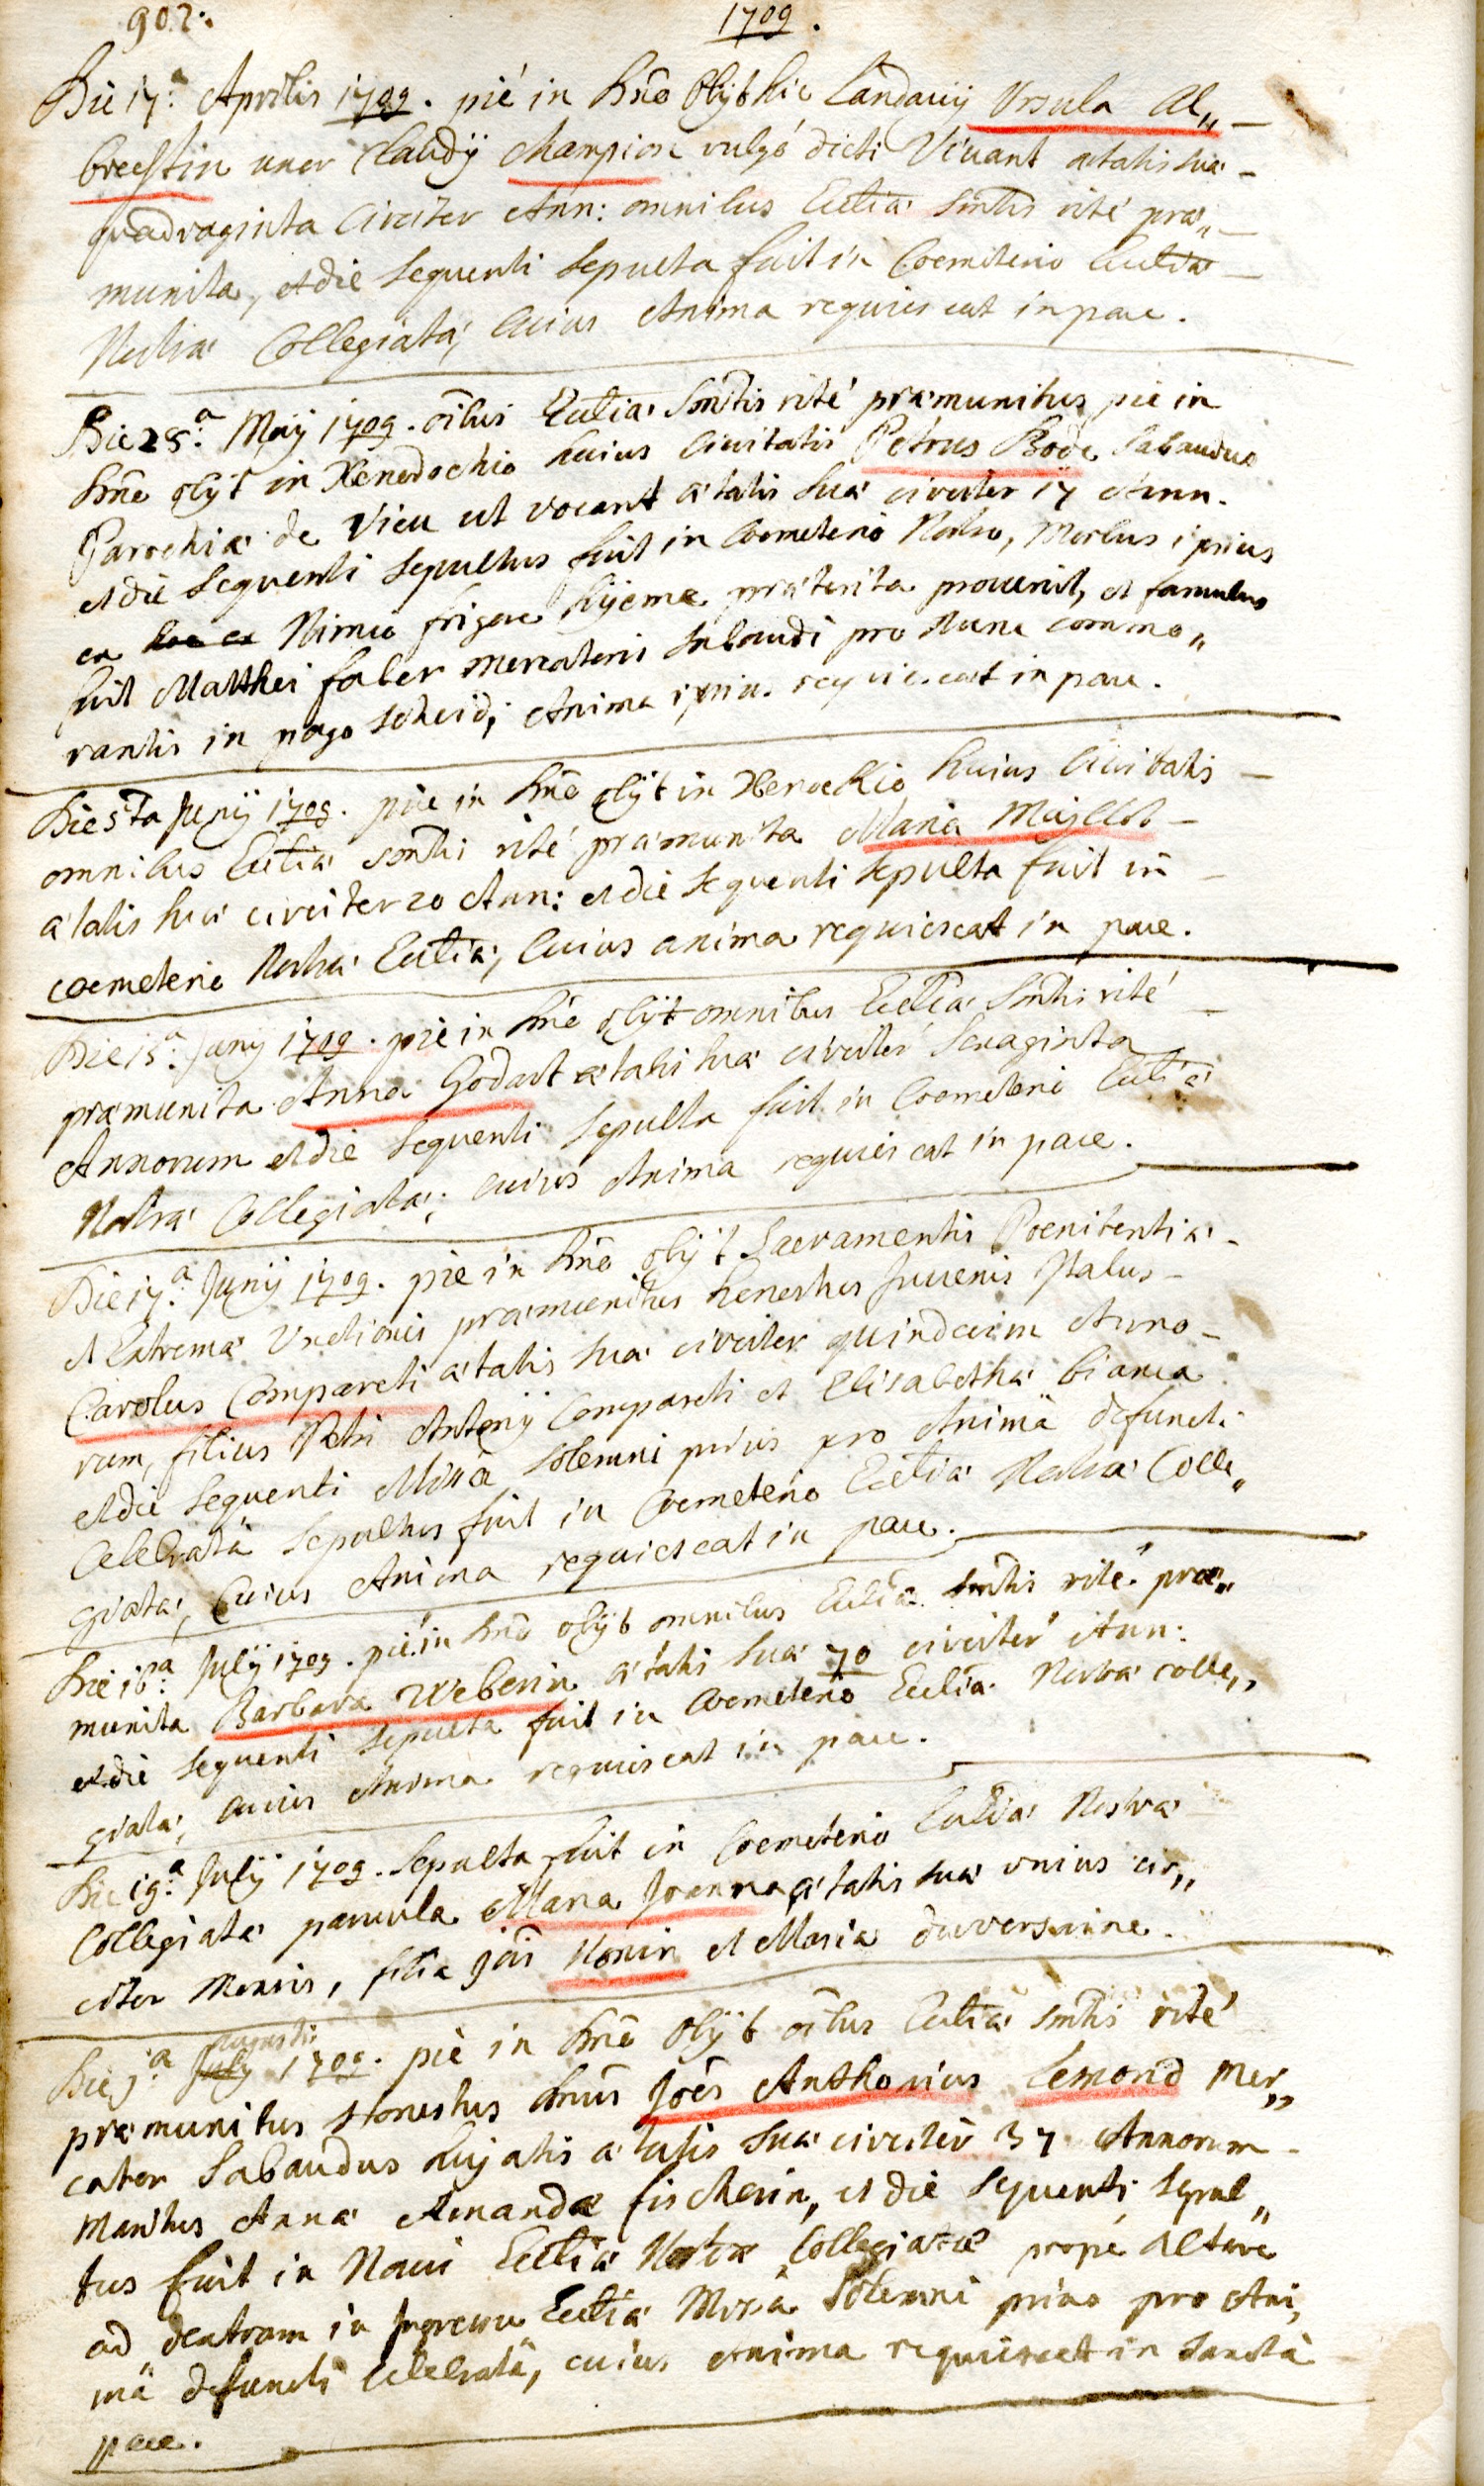 902:
1709.
Die 17.a Aprilis 1709. pié in Dño Obÿt hic Landavij Ursula Al„
brechtin uxor Claudÿ Champion vulgó dicti Vivant ætatis suæ
quadraginta Circiter Ann: omnibus Ecclîæ Smtis rité præ„
munita, et die sequenti sepulta fuit in Coemiterio Ecclîæ
Nostræ Collegiatæ, Cuius Anima requiescat in pace.
Die 28.a Maÿ 1709. oîbus Ecclîæ Smtis rité præmunitus pie in
Dño obÿt in Xenedochio huius Civitatis Petrus Bode Sabaudus
Parochiæ de Vieu ut vocant ætatis suæ circiter 17 Ann.
et die sequenti sepultus fuit in Coemeterio Nostro, Morbus ipsius
ex hoc ex Nimio frigore hÿeme præterita provenit, et famulus
fuit Matthei faber mercatoris Sabaudi pro Nunc commo„
rantis in pago Scheid; Anima ipsius requiescat in pace.
Die 5ta Junÿ 1709. pie in Dño obÿt in Xenochio huius Civitatis
omnibus Ecclîæ smtis rité præmunita Maria Majllot
ætatis suæ circiter 20 Ann: et die sequenti sepulta fuit in
coemeterio Nostræ Ecclîæ, Cuius anima requiescat in pace.
Die 15.a Juny 1709. pie in Dño obÿt omnibus Ecclîæ Smtis rité
præmunita Anna Godart ætatis suæ circiter Sexaginta
Annorum et die sequenti sepulta fuit in Coemeterio Ecclîæ
Nostræ Collegiatæ; cuius Anima requiescat in pace.
Die 17.a Junÿ 1709. pie in Dño obÿt Sacramentis Poenitentiæ
et Extremæ Unctionis præmunitus honestus Juvenis Italus
Carolus Compareti ætatis suæ circiter quindecim Anno
rum, filius Petri Antonÿ Compareti et Elisabethæ bianca
et die sequenti Missâ solemni prius pro Animâ defuncti
Celebratâ sepultus fuit in Coemeterio Ecclîæ Nostræ Colle„
giatæ, Cuius Anima requiescat in pace.
Die 16.a Julÿ 1709. pié in Dño obÿt omnibus Ecclîæ smtis rité præ„
munita Barbara Weberin ætatis suæ 70 circiter Ann:
et die sequenti sepulta fuit in Coemeterio Ecclîæ Nostræ colle„
giatæ, cuius Anima requiescat in pace.
Die 19.a Julÿ 1709. Sepulta fuit in Coemeterio Ecclîæ Nostræ
Collegiatæ parvula Maria Joanna ætatis suæ unius cir„
citer Mensis, filia Jois Nonin et Mariæ
Die 9.a July Augusti 1709. pié in Dño Obÿt oîbus Ecclîæ smtis rité
præmunitus Honestus Dnus Joês Anthonius Lemond Mer„
cator Sabaudus hujatis ætatis suæ circiter 37 Annorum
Maritus Annæ Amandæ fischerin, et die sequenti sepul„
tus fuit in Navi Ecclîæ Nostræ Collegiatæ propé altare
ad dextram in Ingressu Ecclîæ Missâ Solemni prius pro Ani„
mâ defuncti Celebratâ, cuius Anima requiescat in sanctâ
pace.